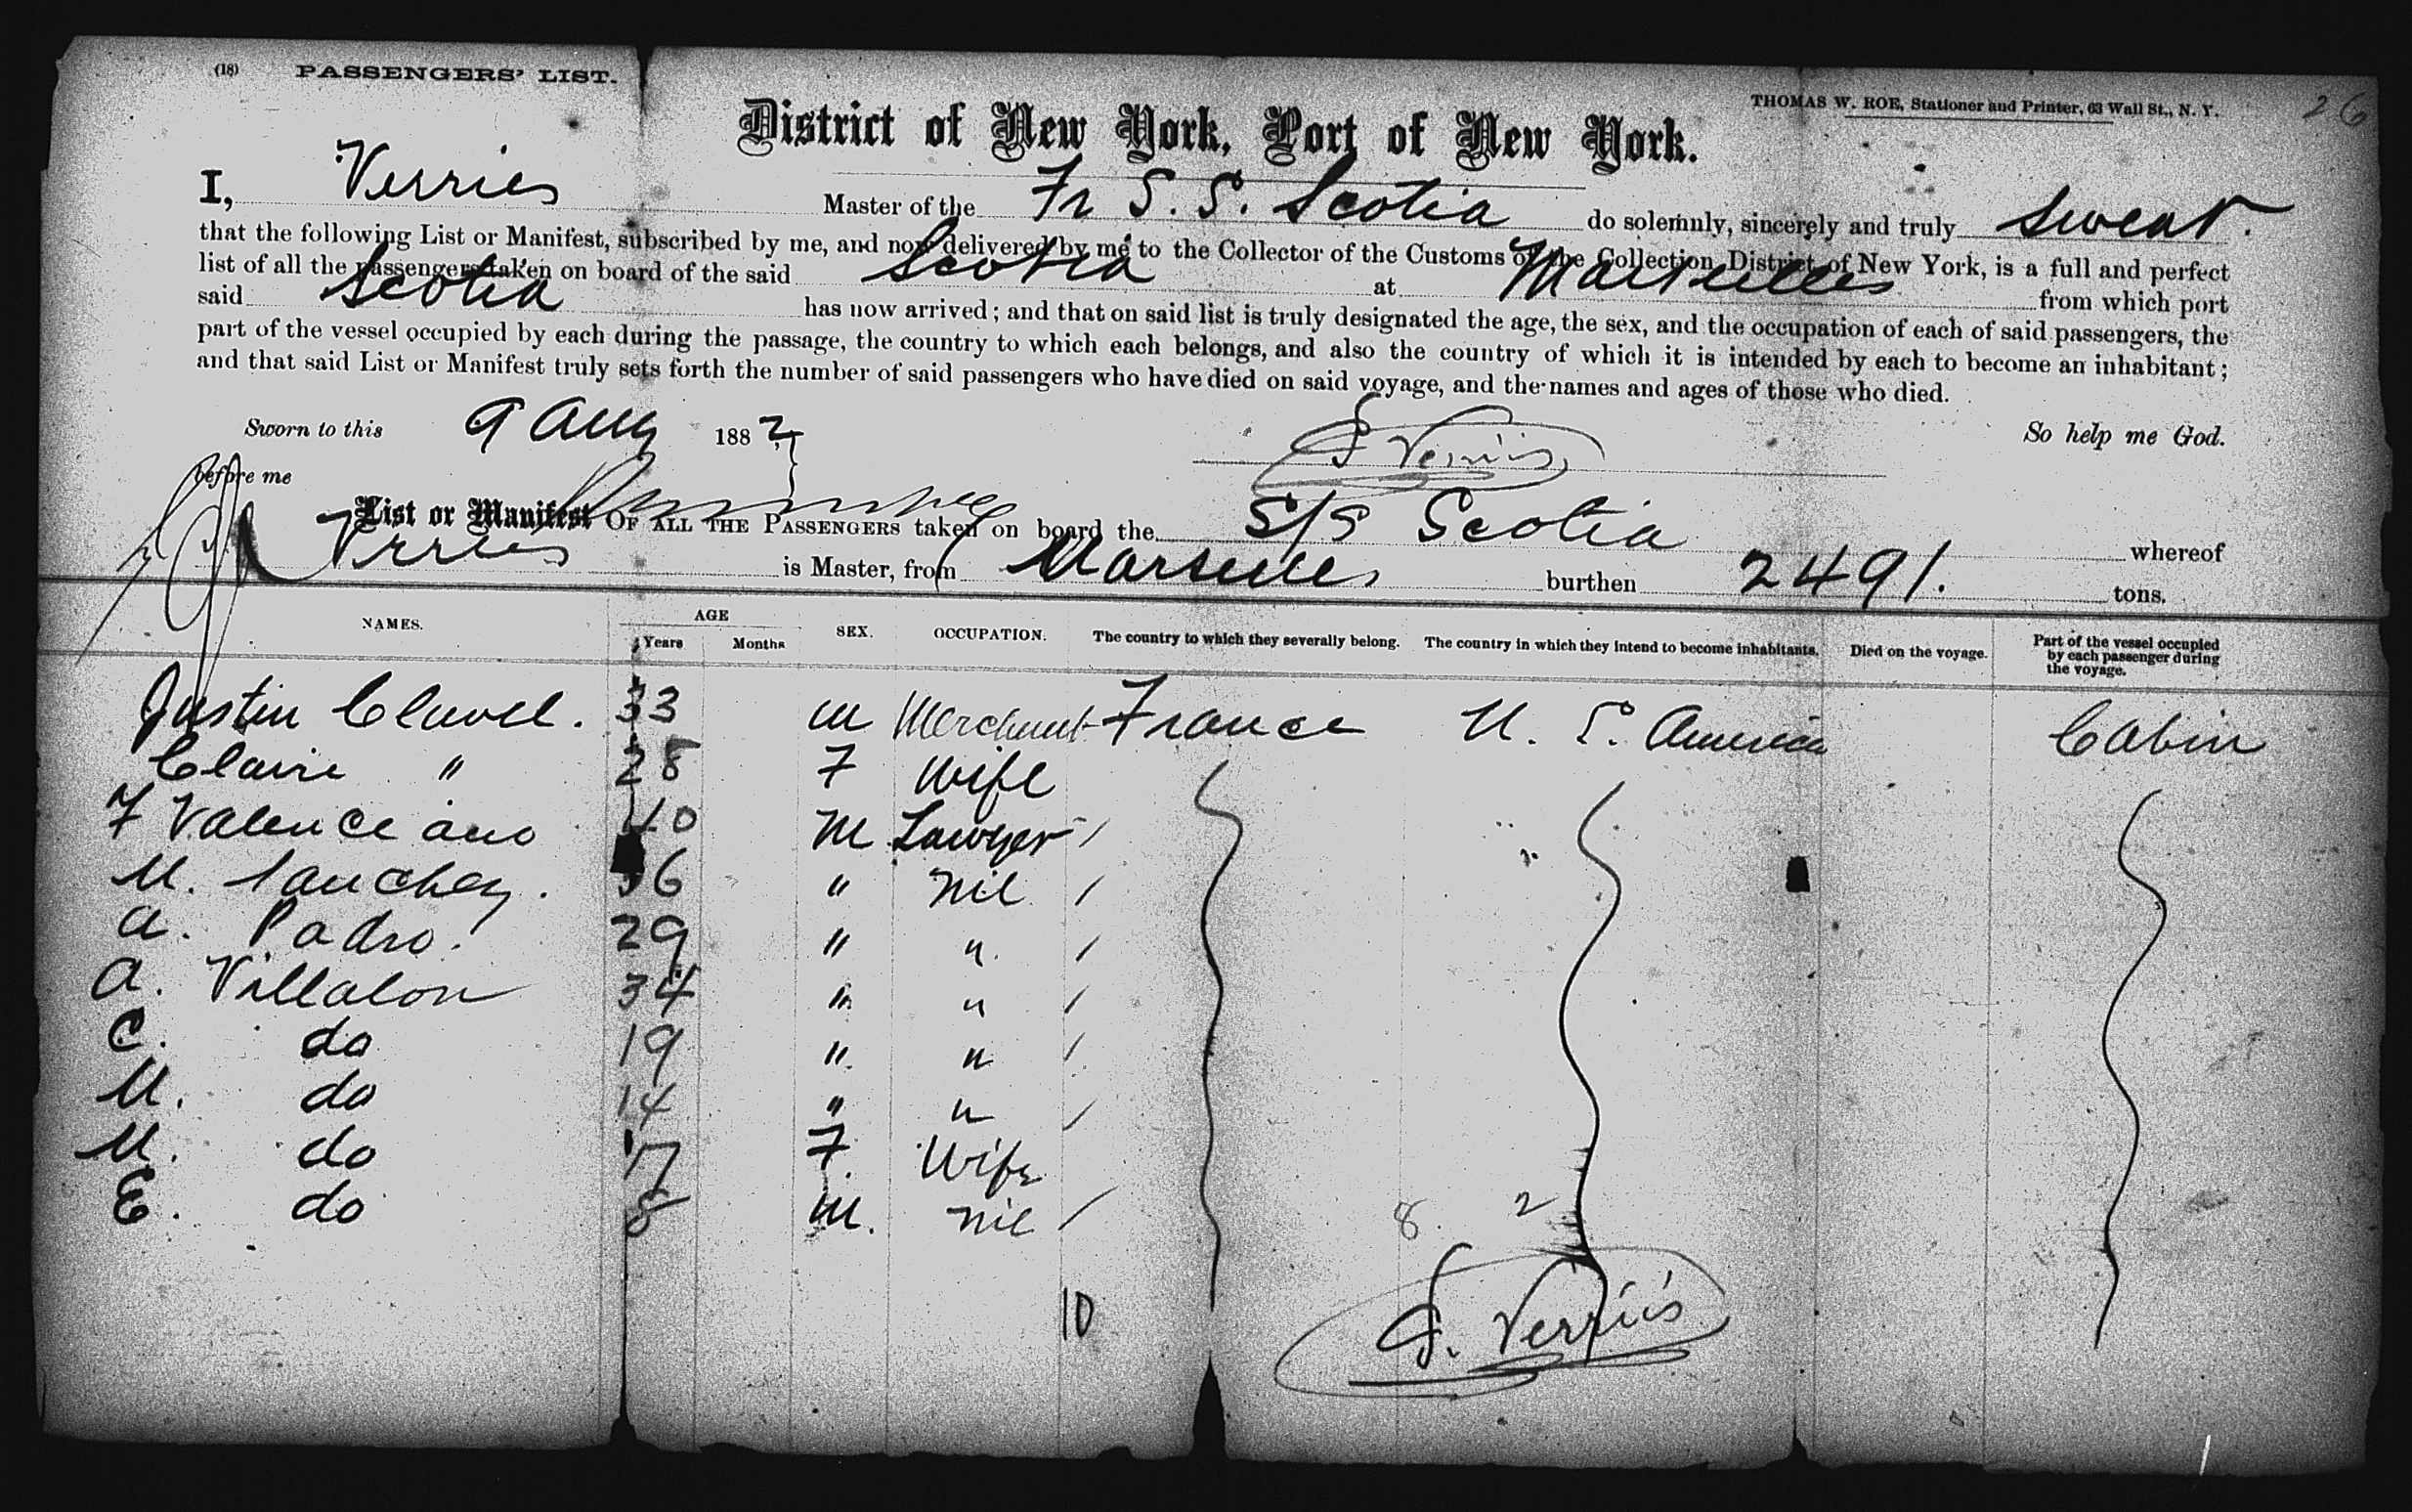 (18) PASSENGERS' LIST.
THOMAS W. ROE, Stationer and Printer, 63 Wall St., N. Y.
26
District of New York, Port of New York.
I, Verries Master of the Fr S. S. Scotia do solemnly, sincerely and truly swear.
that the following List or Manifest, subscribed by me, and now delivered by me to the Collector of the Customs of the Collection District of New York, is a full and perfect
list of all the passengers taken on board of the said Scotia at Marseilles from which port
said Scotia has now arrived; and that on said list is truly designated the age, the sex, and the occupation of each of said passengers, the
part of the vessel occupied by each during the passage, the country to which each belongs, and also the country of which it is intended by each to become an inhabitant;
and that said List or Manifest truly sets forth the number of said passengers who have died on said voyage, and the names and ages of those who died.
Sworn to this 9 Aug 1882
So help me God.
before me
Verries
List or Manifest OF ALL THE PASSENGERS taken on board the S/S Scotia whereof
Verries is Master, from Marseilles burthen 2491. tons.
NAMES. AGE Years Months SEX. OCCUPATION. The country to which they severally belong. The country in which they intend to become inhabitants. Died on the voyage. Part of the vessel occupied by each passenger during the voyage.
Justin Clavel. 33 M Merchant France U. S. America Cabin
Claire " 28 F Wife
F Valenceano 40 M Lawyer /
M. Sanchez. 36 " nil /
A. Padro. 29 " " /
A. Villalon 34 " " /
C. do 19 " " /
M. do 14 " " /
M. do 17 F. Wife
E. do 8 M. nil /
8. 2
10
Verries